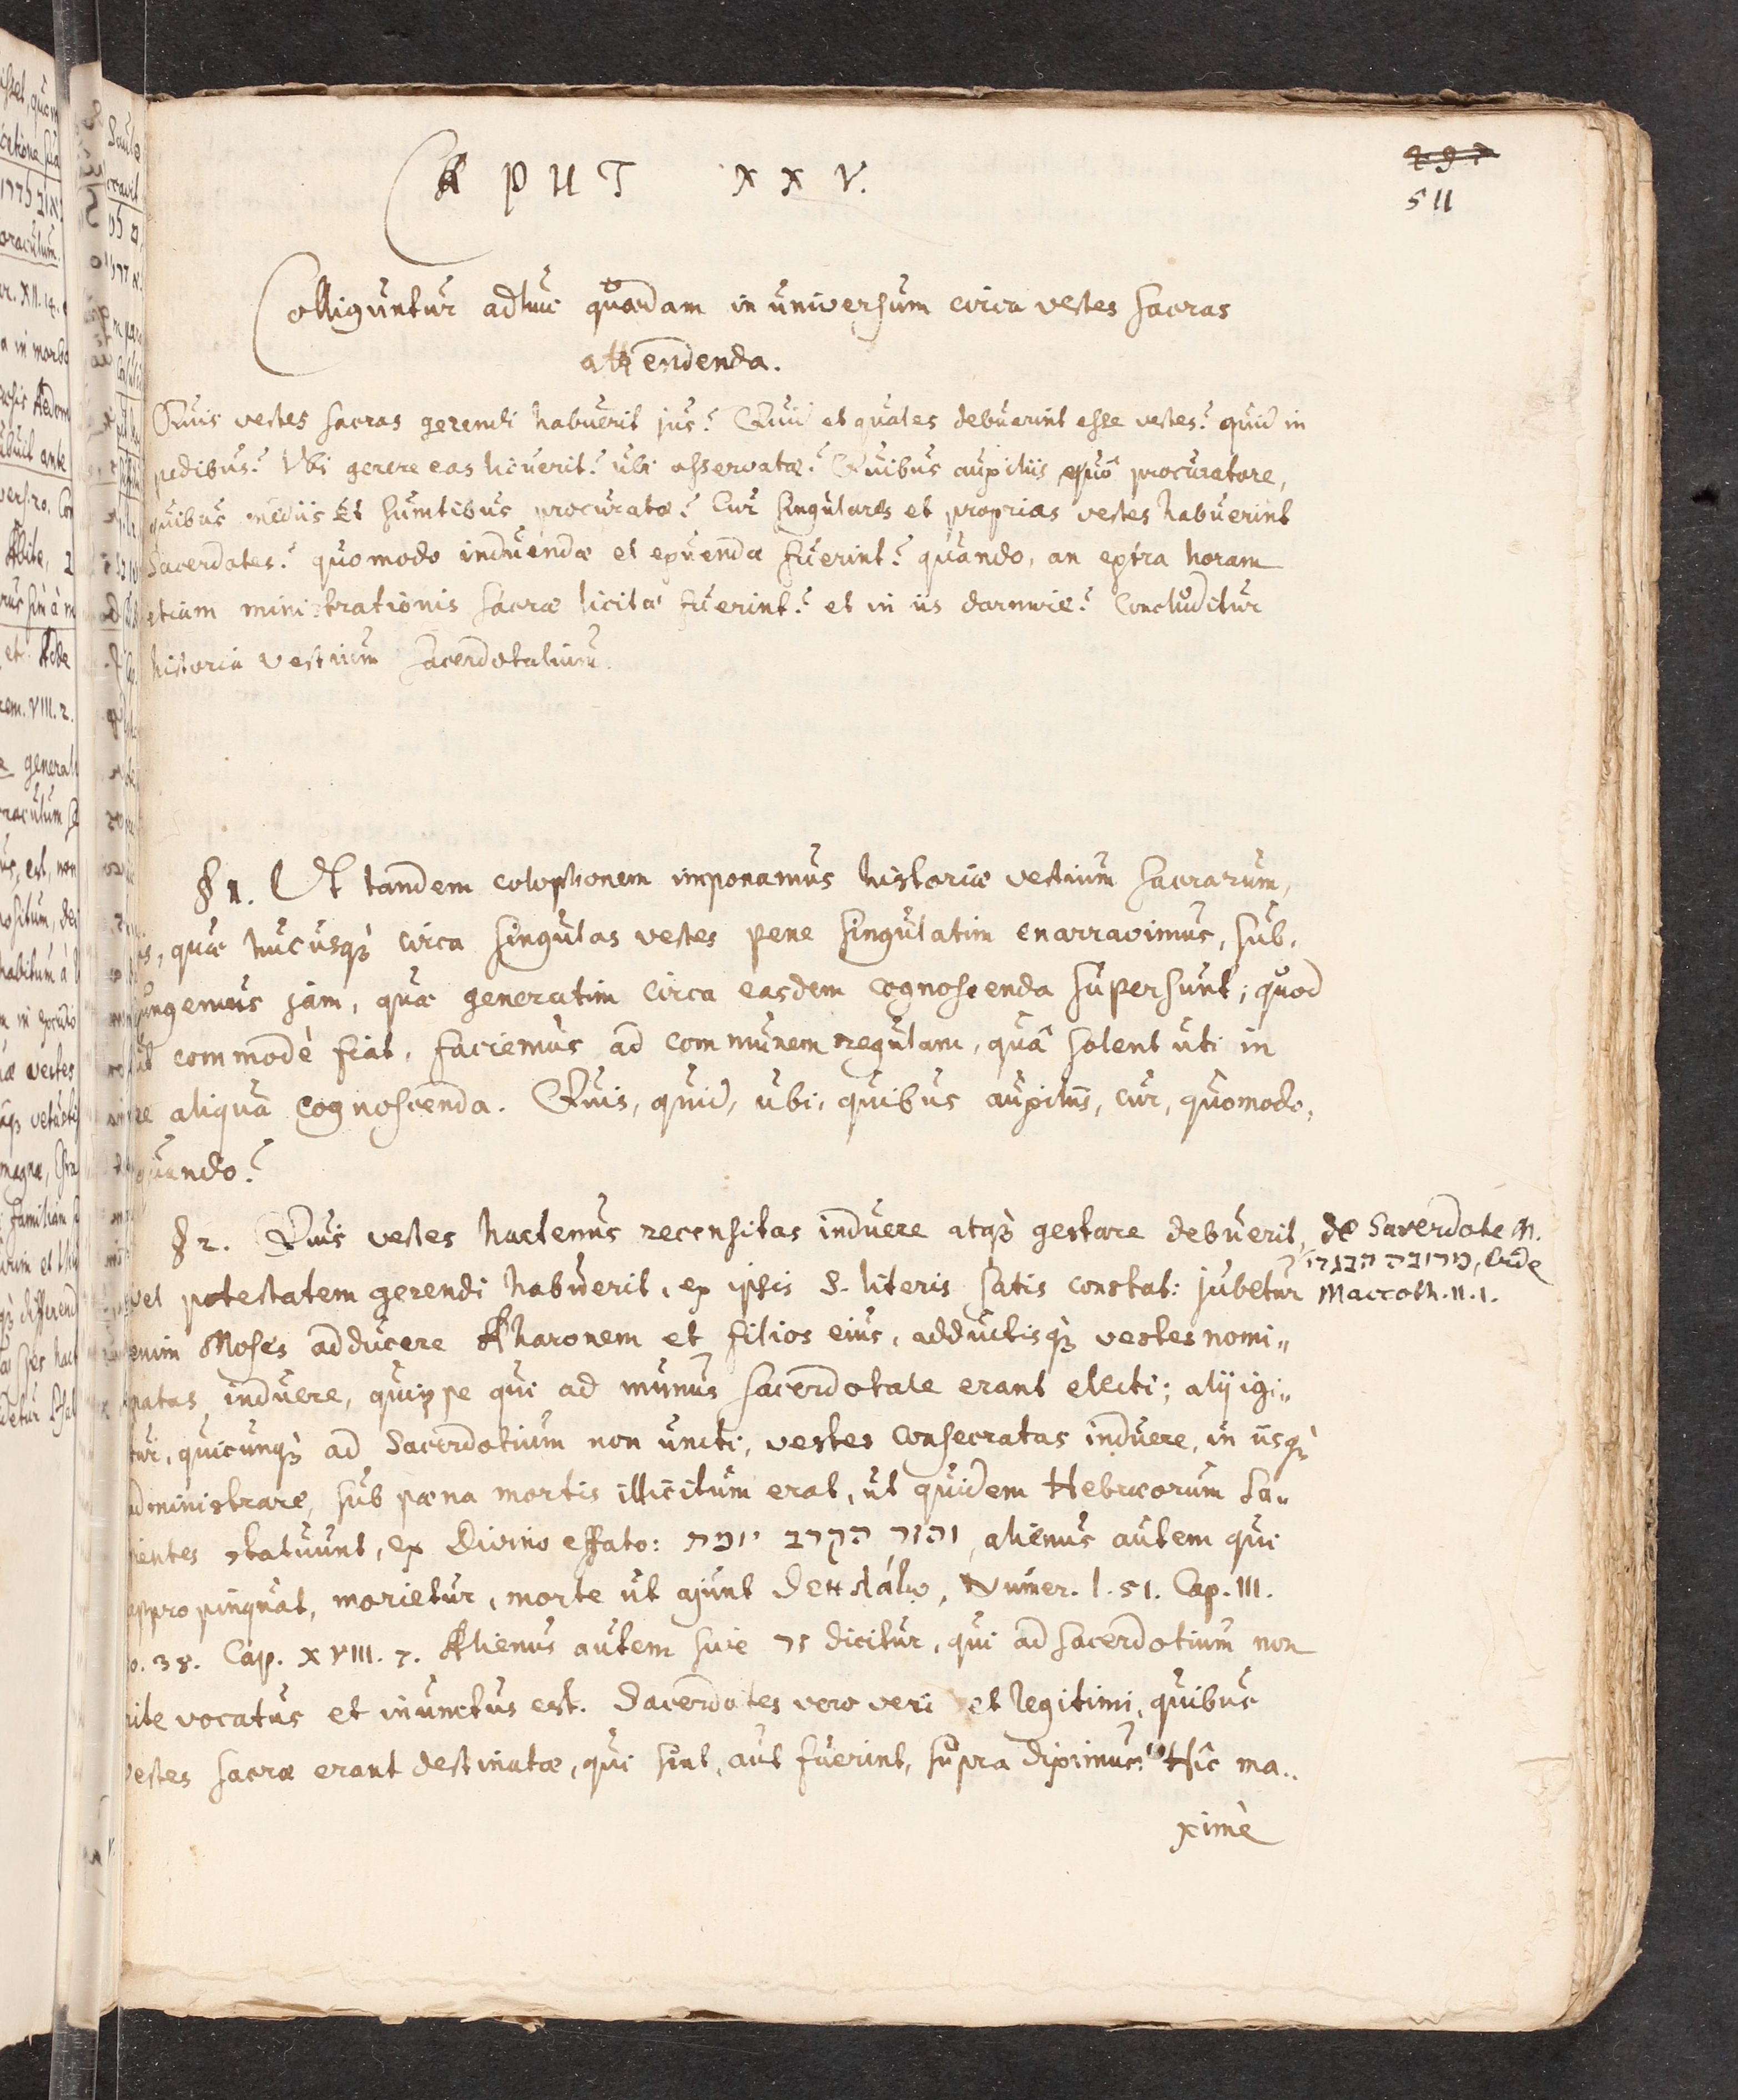 297
511
CAPUT XXV.
Colliguntur adhuc quædam in universum circa vestes sacras
attendenda.
Quis vestes sacras gerendi habuerit jus? Quid et quales debuerint esse vestes? quid in
pedibus? Ubi gerere eas licuerit? ubi asservatæ? Quibus auxiliis, quô procuratore,
quibus mediis et sumtibus procuratæ? Cur singulares et proprias vestes habuerint
Sacerdotes? quomodo induendæ et exuendæ fuerint? quando, an extra horam
etiam ministrationis sacræ licitæ fuerint? et in iis dormire? Concluditur
historia vestium sacerdotalium.
§ 1. Ut tandem colophonem imponamus historiæ vestium sacrarum,
is, quæ hucusq; circa singulas vestes pene singulatim enarravimus, sub-
jungemus jam, quæ generatim circa easdem cognoscenda supersunt; quod
ut commodè fiat, faciemus ad communem regulam, quâ solent uti in
re aliqua cognoscenda. Quis, quid, ubi, quibus auxiliis, cur, quomodo,
quando?
§ 2. Quis vestes hactenus recensitas induere atq; gestare debuerit,
vel potestatem gerendi habuerit, ex ipsis S. literis satis constat: jubetur
enim Moses adducere Aharonem et filios eius, adductisq; vestes nomi-
natas induere, quippe qui ad munus sacerdotale erant electi; alij igi-
tur, quicunq; ad Sacerdotium non uncti, vestes consecratas induere, in iisq;
administrare, sub pœna mortis illicitum erat, ut quidem Hebræorum Sa-
pientes statuunt, ex Divino effato: והזר הקרב יומת, alienus autem qui
appropinquat, morietur, morte ut ajunt, Numer. I. 51. Cap. III.
10. 38. Cap. XVIII. 7. Alienus autem sive זר dicitur, qui ad sacerdotium non
rite vocatus et inunctus est. Sacerdotes vero veri et legitimi, quibus
vestes sacræ erant destinatæ, qui sint, aut fuerint, supra diximus. Hîc ma-
ximè
de Sacerdote M.
מרובה הבגדי, vide
Maccoth. II. 1.